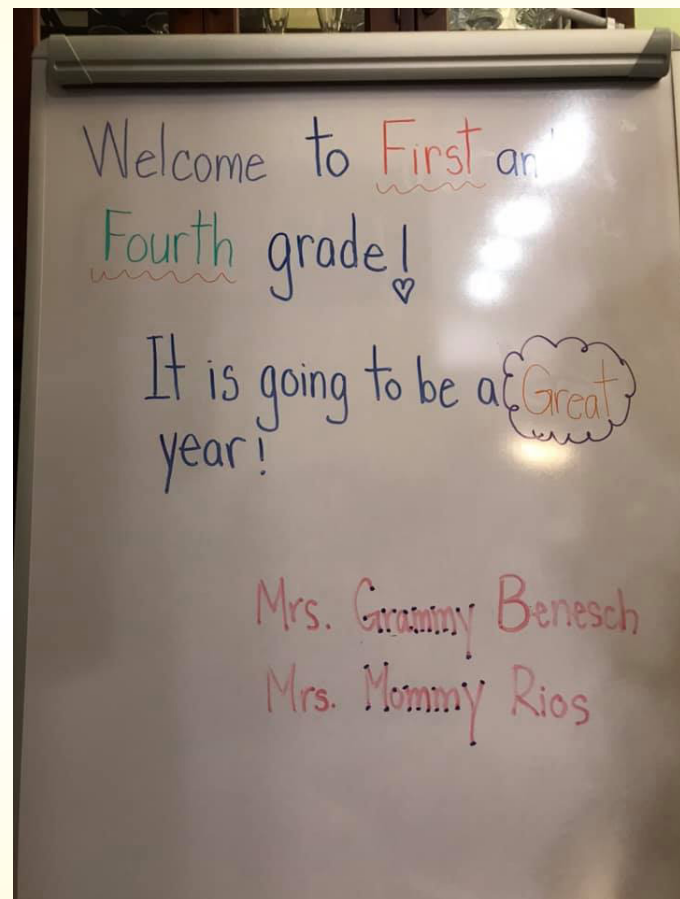 Welcome to First an
Fourth grade!
It is going to be a Great
year!
Mrs. Grammy Benesch
Mrs. Mommy Rios